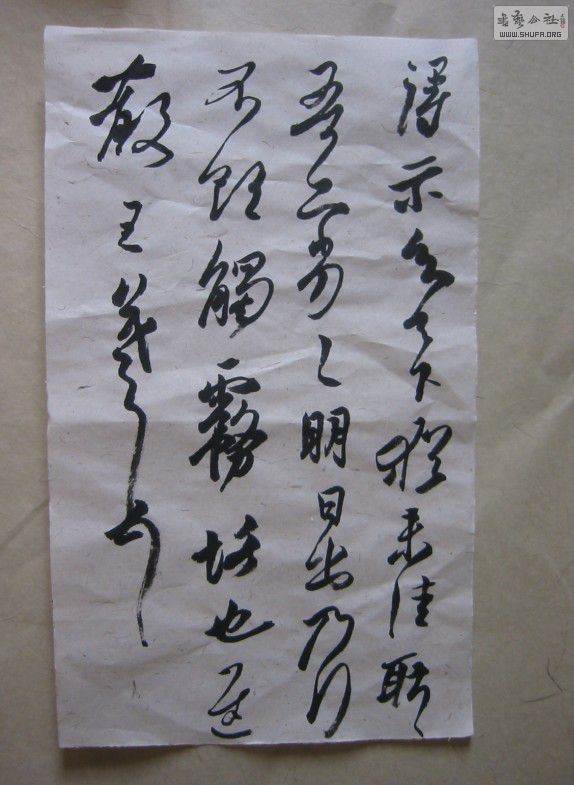 得示知足下猶未佳耿々
吾亦劣々明日出乃行
不欲觸霧故也遲
散王羲之頓首
書藝公社
WWW.SHUFA.ORG